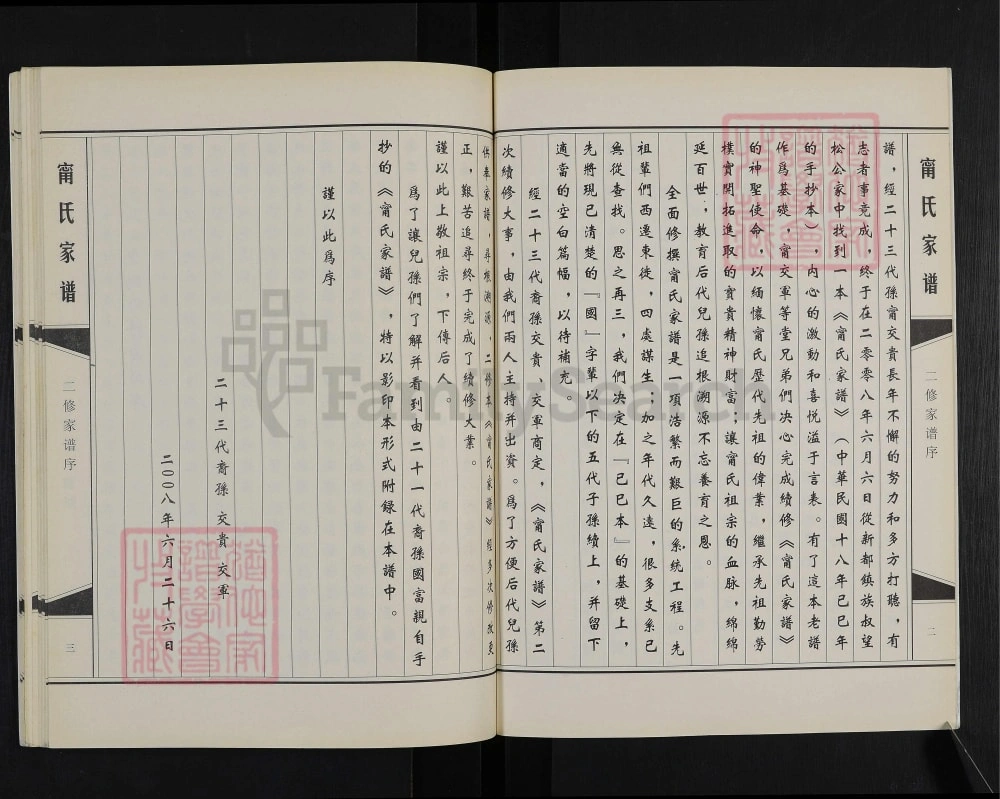 甯氏家谱
二修家谱序
二
譜，經二十三代孫甯交貴長年不懈的努力和多方打聽，有
志者事竟成，終于在二零零八年六月六日從新都鎮族叔望
松公家中找到一本《甯氏家譜》（中華民國十八年己巳年
的手抄本），內心的激動和喜悅溢于言表。有了這本老譜
作爲基礎，甯交軍等堂兄弟們決心完成續修《甯氏家譜》
的神聖使命，以緬懷甯氏歷代先祖的偉業，繼承先祖勤勞
樸實開拓進取的寶貴精神財富；讓甯氏祖宗的血脉，綿綿
延百世，教育后代兒孫追根溯源不忘養育之恩。
全面修撰甯氏家譜是一項浩繁而艱巨的系統工程。先
祖輩們西遷東徙，四處謀生；加之年代久遠，很多支系已
無從查找。思之再三，我們決定在『己巳本』的基礎上，
先將現已清楚的『國』字輩以下的五代子孫續上，并留下
適當的空白篇幅，以待補充。
經二十三代裔孫交貴、交軍商定，《甯氏家譜》第二
次續修大事，由我們兩人主持并出資。爲了方便后代兒孫
供奉家譜，尋根溯源，二修本《甯氏家譜》經多次修改更
正，艱苦追尋終于完成了續修大業。
謹以此上敬祖宗，下傳后人。
爲了讓兒孫們了解并看到由二十一代裔孫國富親自手
抄的《甯氏家譜》，特以影印本形式附錄在本譜中。
謹以此爲序
二十三代裔孫 交貴 交軍
二00八年六月二十六日
甯氏家谱
二修家谱序
三
FamilySearch